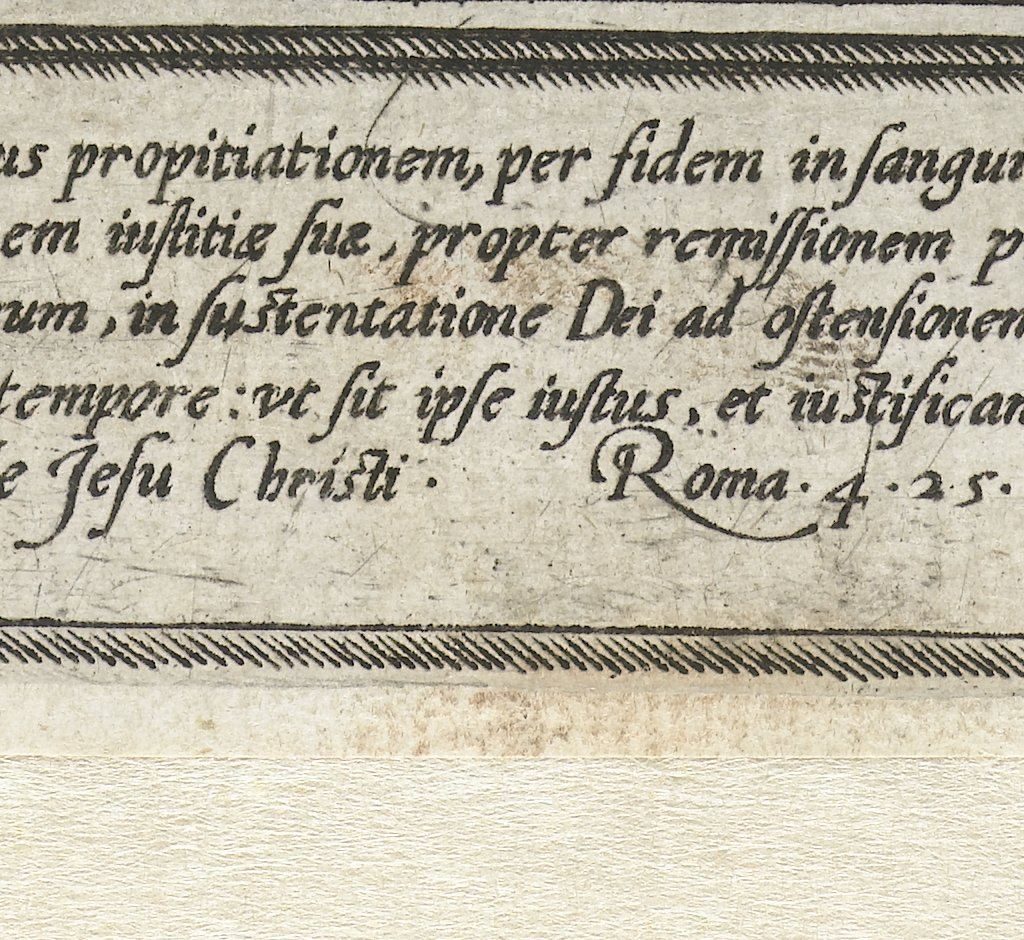 us propitiationem, per fidem in ſangui
em iuſtitiæ ſuæ, propter remiſſionem p
rum, in ſuſtentatione Dei ad oſtenſionem
tempore: vt ſit ipſe iuſtus, et iuſtifican
e Jeſu Chriſti. Roma. 4. 25.